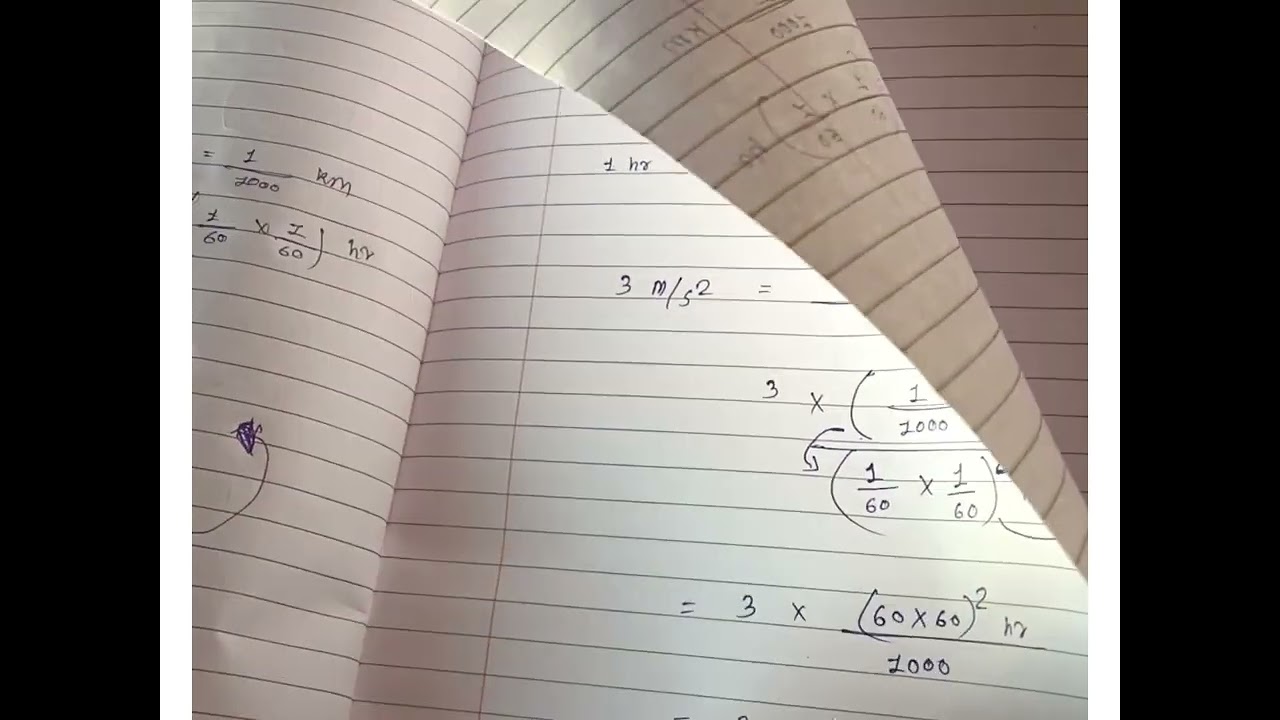 = 1/1000 km
1/60 x 1/60) hr
1 hr
3 m/s2 =
3 x (1/1000
(1/60 x 1/60)
= 3 x (60x60)2/1000 hr